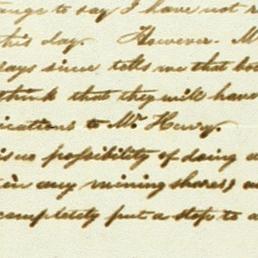 ange to say I have not r
this day. However. M
days since tells me that bo
think that they will have
ications to Mr. Henry.
is no possibility of doing a
in any mining shares; a
completely put a stop to a